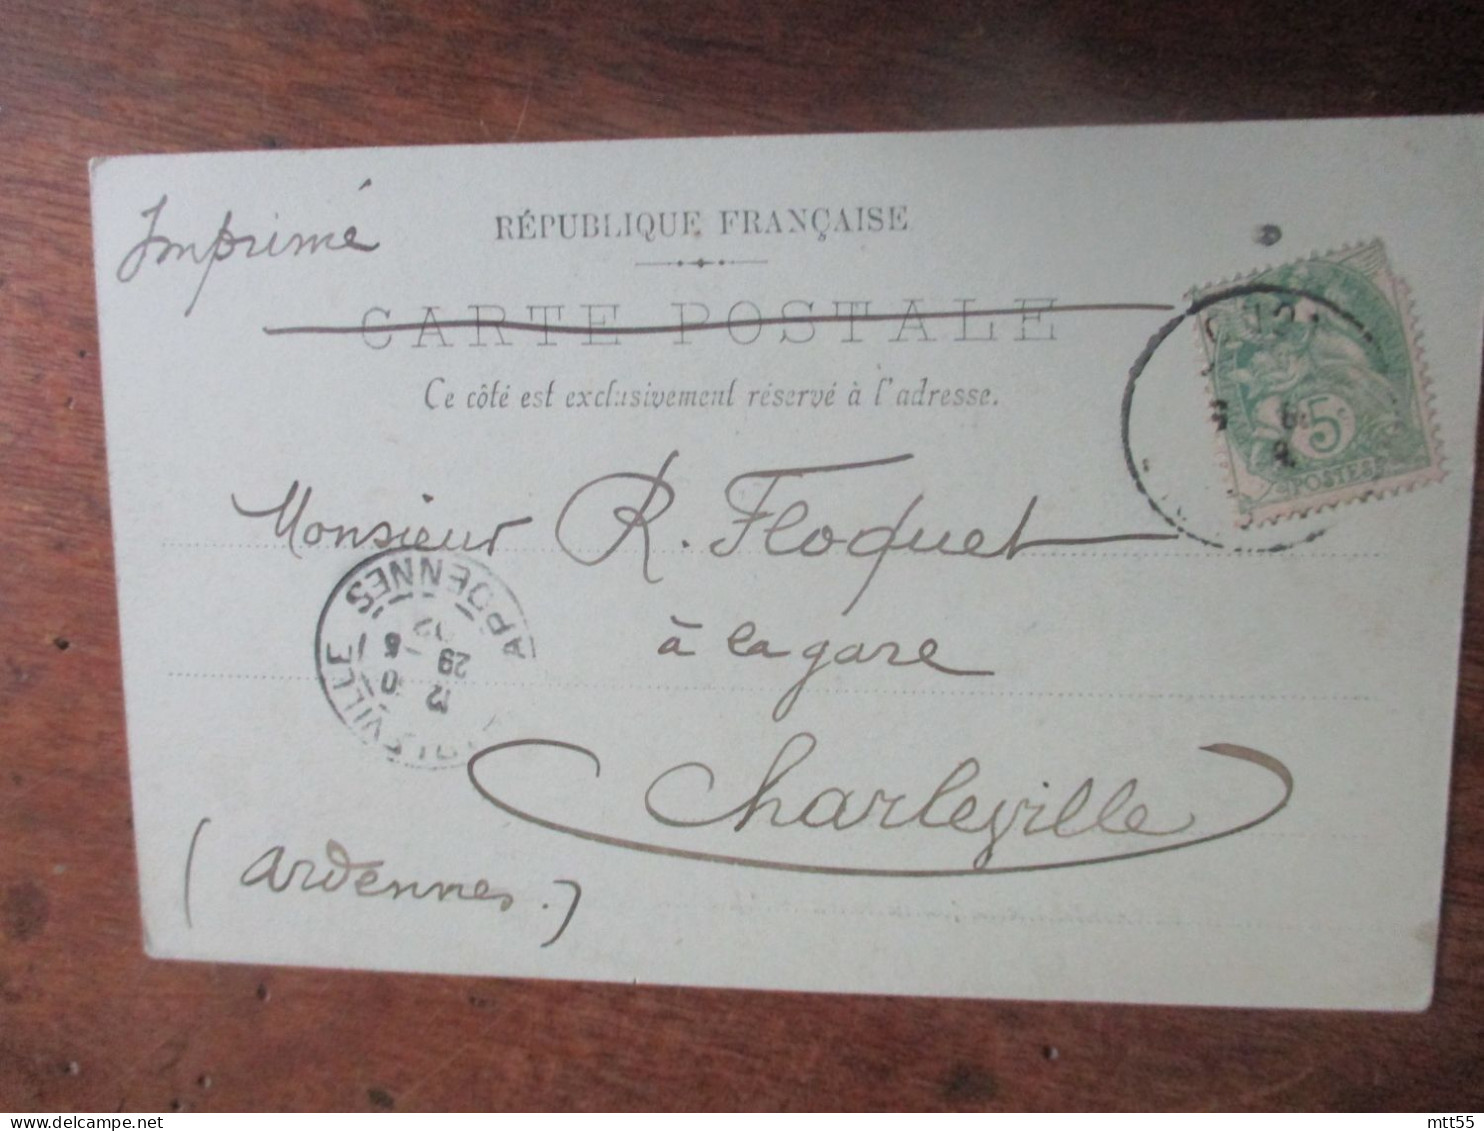 Imprimé
RÉPUBLIQUE FRANÇAISE
CARTE POSTALE
Ce côté est exclusivement réservé à l'adresse.
5c
POSTES
Monsieur R. Floquet
à la gare
Charleville
(Ardennes.)
ARDENNES
29
mtt55